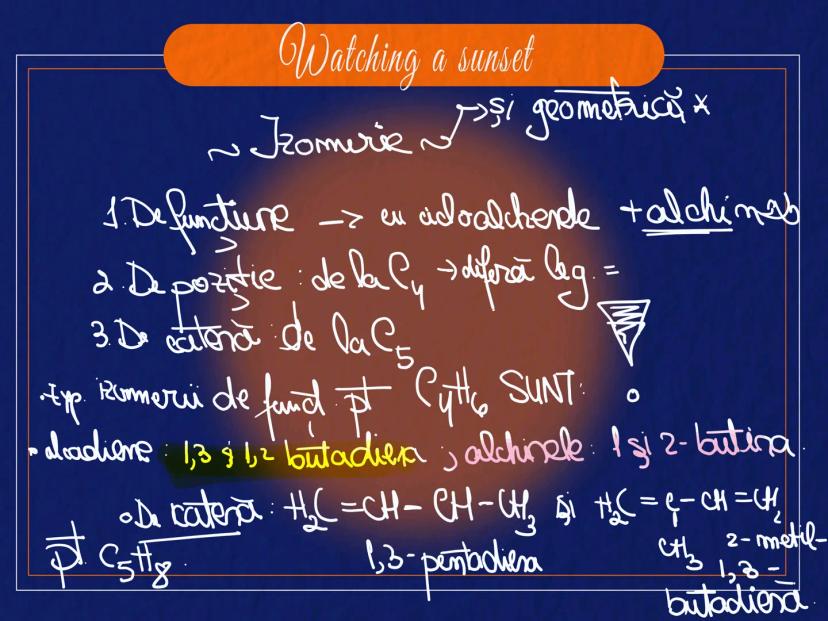 Watching a sunset
→ și geometrică *
~ Izomerie ~
1. De funcțiune -> cu cicloalchenele + alchinele
2. De poziție : de la C4 → diferă leg. =
3. De catenă : de la C5
Izomerii de funcț pt C4H6 SUNT:
• alcadiene : 1,3 și 1,2 butadiena ; alchinele: 1 și 2-butina
• De catenă : H2C =CH- CH-CH3 și H2C = C - CH =CH2
pt C5H8 1,3-pentadiena CH3 2-metil-
1,3-
butadienă.